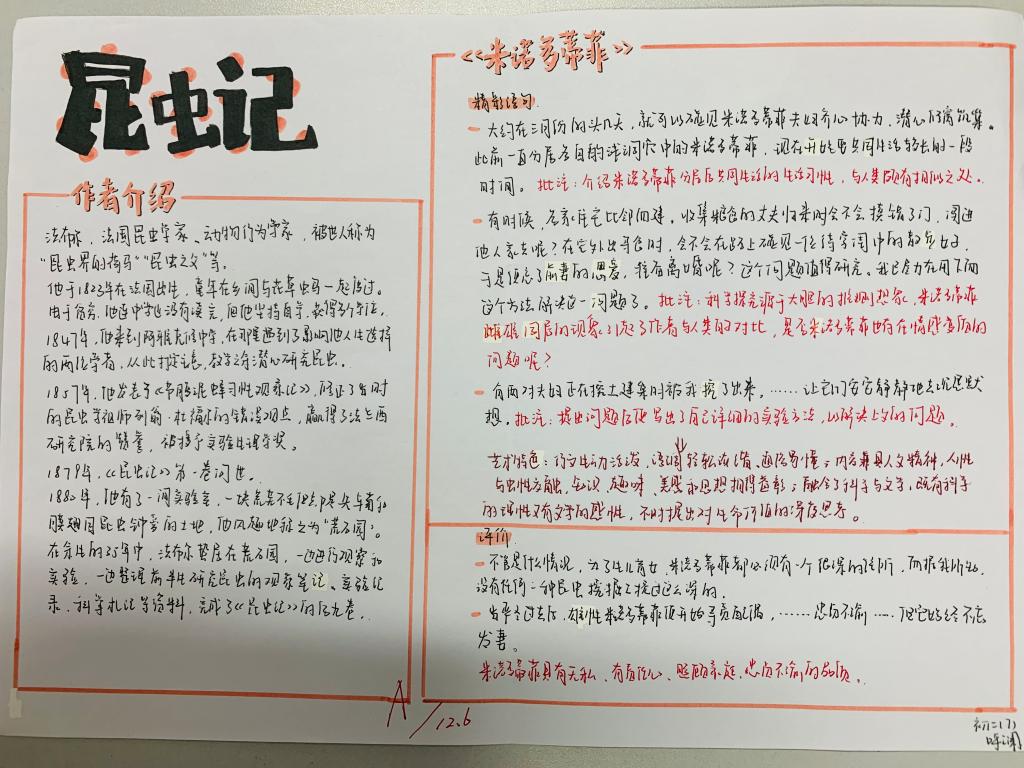 昆虫记
作者介绍
法布尔，法国昆虫学家、动物行为学家，被世人称为
“昆虫界的荷马”“昆虫之父”等。
他于1823年在法国出生，童年在乡间与花草虫鸟一起度过。
由于贫穷，他连中学也没有读完，但他坚持自学，获得多个学位。
1847年，他来到阿雅克修中学，在那里遇到了影响他人生选择
的两位学者，从此教学之余潜心研究昆虫。
1857年，他发表了《节腹泥蜂习性观察记》，修正了当时
的昆虫学祖师列翁·杜福尔的错误观点，赢得了法兰西
研究院的赞誉，被授予实验生理学奖。
1879年，《昆虫记》第一卷问世。
1880年，他有了一间实验室，一块荒芜不毛但是矢车菊和
膜翅目昆虫钟意的土地，他风趣地称之为“荒石园”。
在余生的35年中，法布尔蛰居在荒石园，一边进行观察和
实验，一边整理前半生研究昆虫的观察笔记、实验记
录、科学札记等资料，完成了《昆虫记》的后九卷。
《米诺多蒂菲》
精彩语句
大约在三月份的头几天，就可以碰见米诺多蒂菲夫妇齐心协力，潜心修窝筑巢。
此前一直分居各自的浅洞穴中的米诺多蒂菲，现在开始要共同生活较长的一段
时间。批注：介绍米诺多蒂菲分居后共同生活的生活习性，与人类颇有相似之处。
有时候，各家住宅比邻而建。收集粮食的丈夫归来时会不会摸错了门，闯进
他人家去呢？在它外出寻食时，会不会在路上碰见一位待字闺中的散步女，
于是便忘了前妻的恩爱，准备离婚呢？这个问题值得研究。我已尽力在用下面
这个方法解决这一问题了。批注：科学探究源于大胆的推测想象，米诺多蒂菲
雌雄同居的现象引起了作者与人类的对比，是否米诺多蒂菲也存在情感专一的
问题呢？
有两对夫妇正在挖土建巢时被我挖了出来，……让它们安安静静地去沉思默
想。批注：提出问题后便写出了自己详细的实验方法，以解决上文的问题。
艺术特色：行文生动活泼，语调轻松诙谐，通俗易懂；内容兼具人文精神，人性
与虫性交融，知识、趣味、美感和思想相得益彰；融合了科学与文学，既有科学
的理性又有文学的感性，不时提出对生命价值的深度思考。
评价
不管是什么情况，为了生儿育女，米诺多蒂菲都必须有一个很深的住所，而据我所知，
没有任何一种昆虫挖掘工挖过这么深的。
严冬过去后，雄性米诺多蒂菲便开始寻觅配偶，……忠贞不渝……但它始终不忘
发妻。
米诺多蒂菲具有无私、有责任心、照顾家庭、忠贞不渝的品质。
A / 12.6
初二(7)